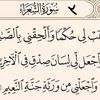 ٢ سُورَةُ الشُّعَرَاءِ
هَبْ لِي حُكْمًا وَأَلْحِقْنِي بِالصَّـ
وَاجْعَل لِّي لِسَانَ صِدْقٍ فِي الْآخِرِ
وَاجْعَلْنِي مِن وَرَثَةِ جَنَّةِ النَّعِيمِ